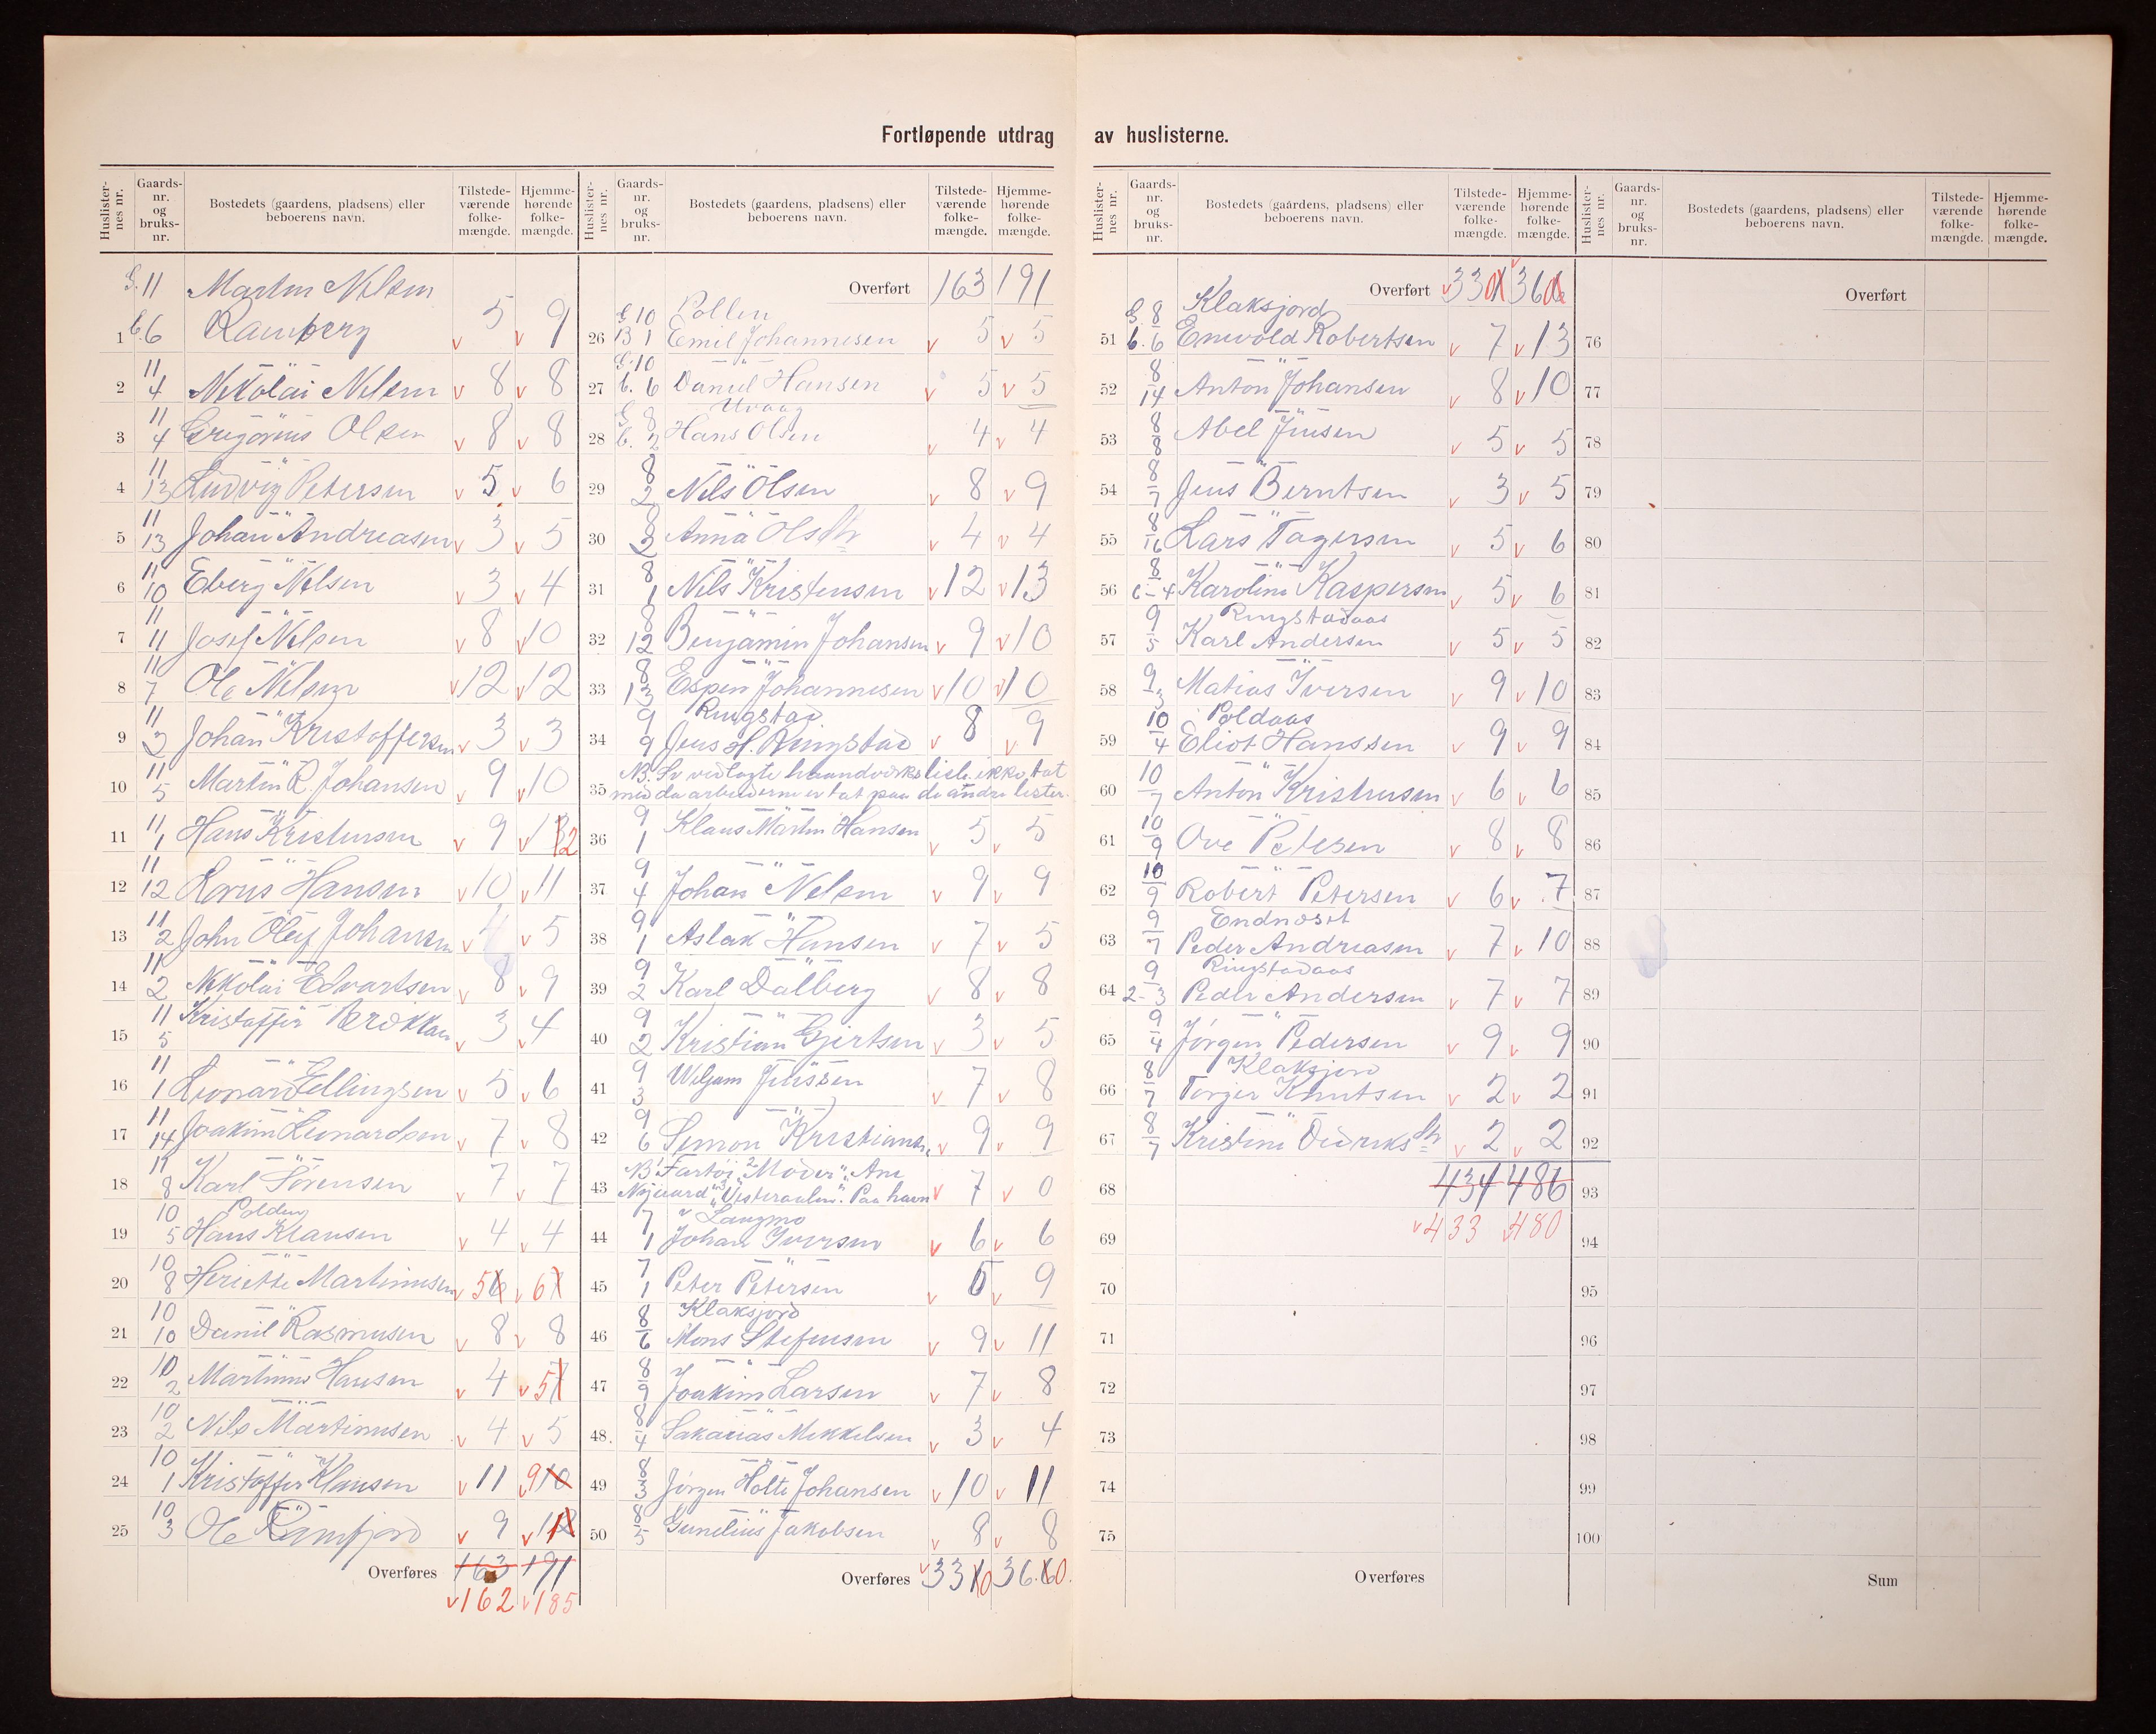 Fortløpende utdrag av huslisterne.
Huslister-nes nr. Gaards-nr. og bruks-nr. Bostedets (gaardens, pladsens) eller beboerens navn. Tilstede-værende folke-mængde. Hjemme-hørende folke-mængde.
G. 11 Martin Nilsen
1 b. 6 Ramberg 5 9
2 11/4 Nikolai Nilsen 8 8
3 11/4 Gregorius Olsen 8 8
4 11/13 Ludvig Petersen 5 6
5 11/13 Johan Andreasen 3 5
6 11/10 Eberg Nilsen 3 4
7 11/11 Josef Nilsen 8 10
8 11/7 Ole Nilsen 12 12
9 11/3 Johan Kristoffersen 3 3
10 11/5 Martin R. Johansen 9 10
11 11/1 Hans Kristensen 9 12
12 11/12 Hansen 10 11
13 11/2 John Oluf Johansen 4 5
14 11/2 Nikolai Edvartsen 8 9
15 11/5 Kristoffer 3 4
16 11/1 Leonard Ellingsen 5 6
17 11/14 Joakim Leonardsen 7 8
18 11/8 Karl Sørensen 7 7
10 Polden
19 5 Hans Klausen 4 4
20 10/8 Martinusen 56 67
21 10/10 Daniel Rasmusen 8 8
22 10/2 Martinus Hansen 4 5
23 10/2 Nils Martinusen 4 5
24 10/1 Kristoffer Klausen 11 9 10
25 10/3 Ole Ramfjord 9 12
Overføres 163 191
162 185
Huslister-nes nr. Gaards-nr. og bruks-nr. Bostedets (gaardens, pladsens) eller beboerens navn. Tilstede-værende folke-mængde. Hjemme-hørende folke-mængde.
Overført 163 191
G 10 Pollen
26 B 1 Emil Johannesen 5 5
27 G. 10 b. 6 Daniel Hansen 5 5
G 8
28 b. 2 Hans Olsen 4 4
29 8/2 Nils Olsen 8 9
30 8/2 Anna Olsdtr 4 4
31 8/1 Nils Kristensen 12 13
32 8/12 Benjamin Johansen 9 10
33 8/13 Espen Johannesen 10 10
9 Ringstad
34 9 Jens H. Ringstad 8 9
NB. Se vedlagte haandværksliste ikke tat
35 med da arbeiderne er tat paa de andre lister.
36 9/1 Klaus Martin Hansen 5 5
37 9/4 Johan Nilsen 9 9
38 9/1 Aslak Hansen 7 5
39 9/2 Karl Dalberg 8 8
40 9/2 Kristian Gjertsen 3 5
41 9/3 Wiljam Jenssen 7 8
42 9/6 Simon Kristians. 9 9
NB. Fartøi "Moder". Ane
43 Nygaard "Vesteraalen". Paa havn 7 0
7 Langmo
44 1 Johan Iversen 6 6
45 7/1 Peter Petersen 5 9
8 Klaksjord
46 6 Mons Stefensen 9 11
47 8/9 Joakim Larsen 7 8
48 8/4 Sakarias Mikkelsen 3 4
49 8/3 Jørgen Holte Johansen 10 11
50 8/5 Jakobsen 8 8
Overføres 3310 36.60.
Huslister-nes nr. Gaards-nr. og bruks-nr. Bostedets (gaardens, pladsens) eller beboerens navn. Tilstede-værende folke-mængde. Hjemme-hørende folke-mængde.
Overført 330 360
G. 8 Klaksjord
51 b. 6 Enevold Robertsen 7 13
52 8/14 Anton Johansen 8 10
53 8/8 Abel Jensen 5 5
54 8/7 Jens Berntsen 3 5
55 8/16 Lars Tagersen 5 6
56 8/6-4 Karoline Kaspersen 5 6
9 Ringstadaas
57 5 Karl Andersen 5 5
58 9/3 Matias Iversen 9 10
10 Poldaas
59 4 Eliot Hanssen 9 9
60 10/7 Anton Kristensen 6 6
61 10/9 Ove Petesen 8 8
62 10/9 Robert Petersen 6 7
9 Endnæset
63 7 Peder Andreasen 7 10
9 Ringstadaas
64 2-3 Peder Andersen 7 7
65 9/4 Jørgen Pedersen 9 9
8 Klaksjord
66 7 Torger Knutsen 2 2
67 8/7 Kristine Didriksdtr 2 2
68 434 486
69 433 480
70
71
72
73
74
75
Overføres
Huslister-nes nr. Gaards-nr. og bruks-nr. Bostedets (gaardens, pladsens) eller beboerens navn. Tilstede-værende folke-mængde. Hjemme-hørende folke-mængde.
Overført
76
77
78
79
80
81
82
83
84
85
86
87
88
89
90
91
92
93
94
95
96
97
98
99
100
Sum